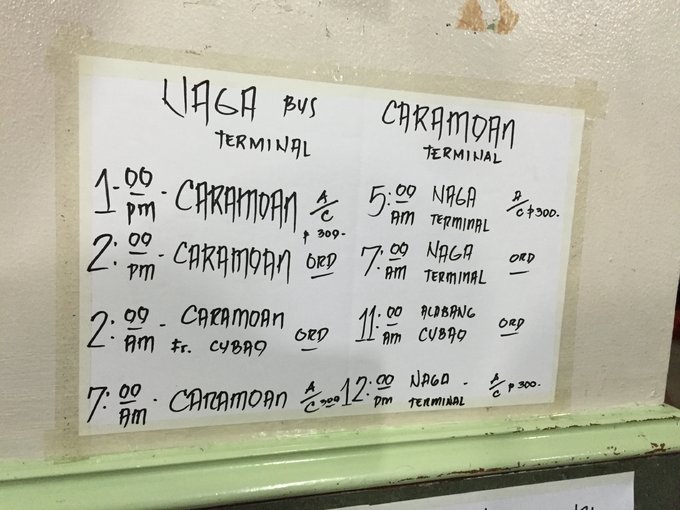 NAGA BUS
TERMINAL
1-00 PM - CARAMOAN A/C
₱ 300-
2:00 PM - CARAMOAN ORD
2:00 AM - CARAMOAN
Fr. CUBAO ORD
7:00 AM - CARAMOAN A/C 300
CARAMOAN
TERMINAL
5:00 AM NAGA TERMINAL A/C ₱300.
7:00 AM NAGA TERMINAL ORD
11:00 AM ALABANG CUBAO ORD
12:00 PM NAGA - TERMINAL A/C ₱300-